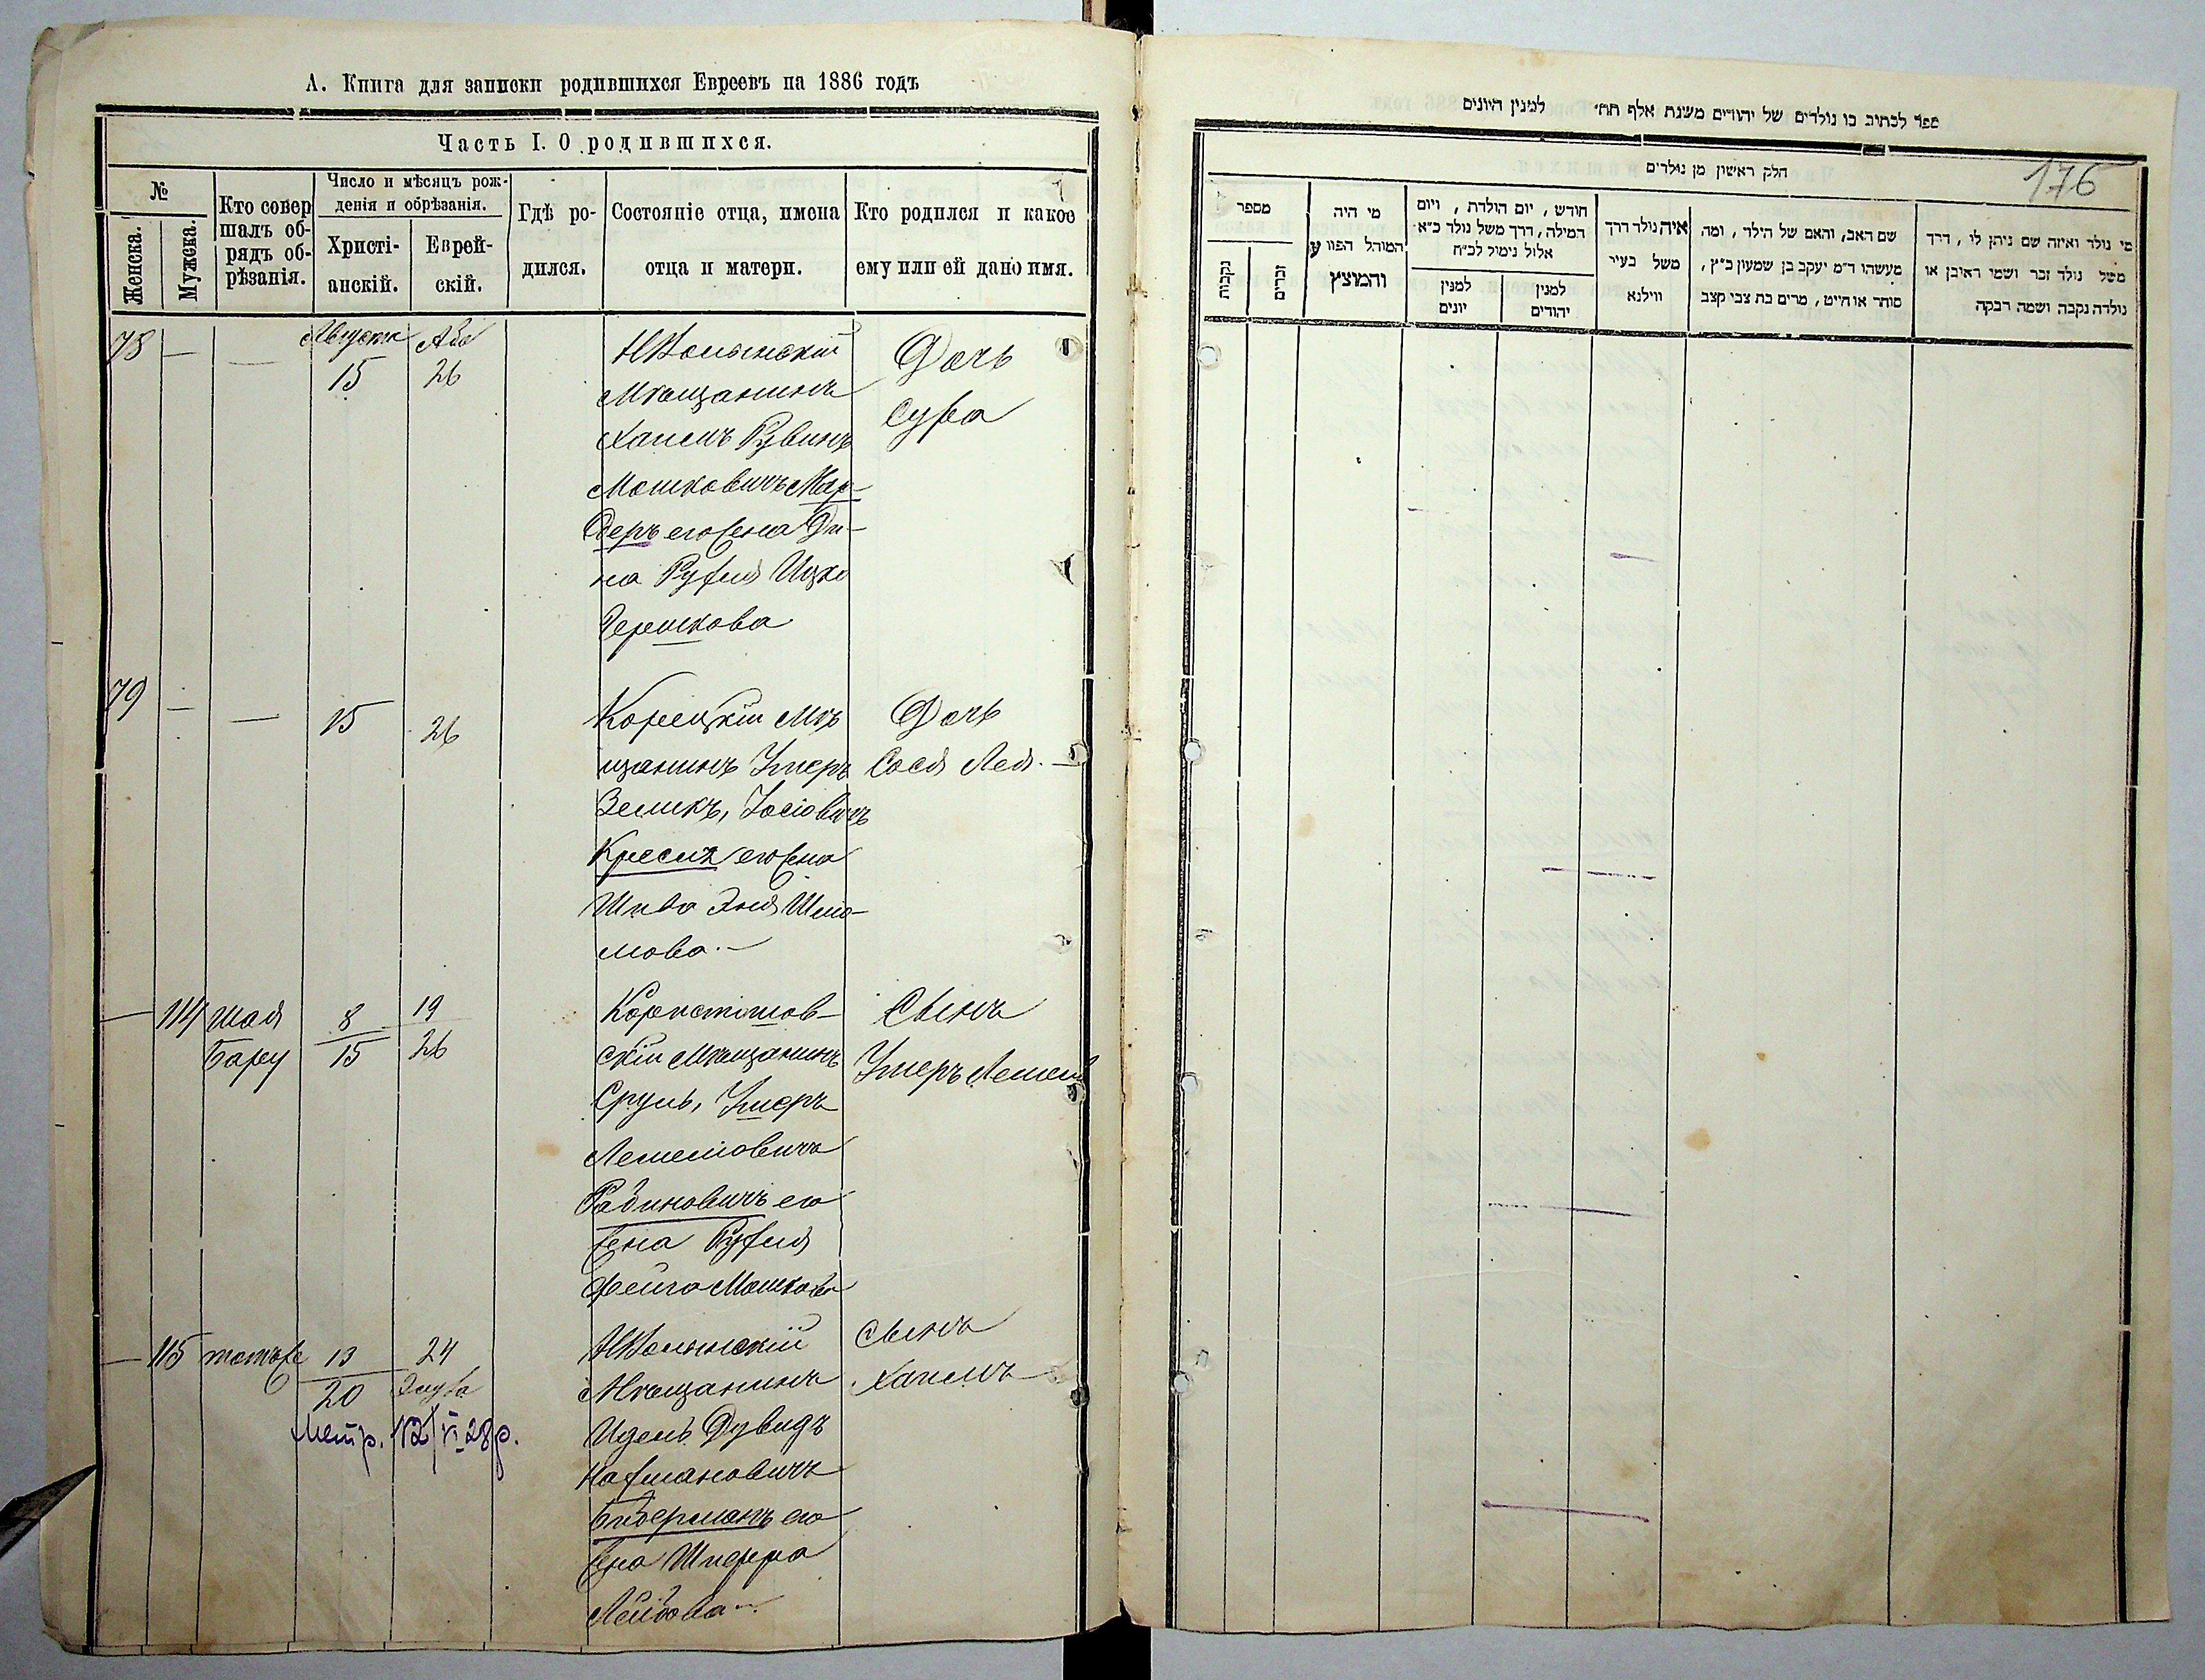 А. Книга для записки родившихся Евреевъ на 1886 годъ
Часть I. О родившихся.
№
Женска.
Мужска.
Кто совер
шалъ об-
рядъ об-
рѣзанія.
Число и мѣсяцъ рож-
денія и обрѣзанія.
Христі-
анскій.
Еврей-
скій.
Гдѣ ро-
дился.
Состояніе отца, имена
отца и матери.
Кто родился и какое
ему или ей дано имя.
78 — —
Августа
15
Аба
26
НВолынскій
Мѣщанинъ
Хаимъ Рувинъ
Мошковичъ Мар-
деръ его жена Ди-
на Рухля Ицко
Гершкова
Дочь
Сура
79 — — 15 26
Корецкій Мѣ
щанинъ Умеръ
Зеликъ, Іосіовичъ
Кресиъ его жена
Шива Эня Шліо-
мова.—
Дочь
Сося Лея.—
— 114 Шая
Бару
8
15
19
26
Коростишов-
скій Мѣщанинъ
Сруль, Умеръ
Лемешовичъ
Рабиновичъ его
жена Рухля
Фейга Мошкова
Сынъ
Умеръ Лемель
— 115 тотъже
13
20
24
Элула
Метр. 12/VI 28р.
НВолынскій
Мѣщанинъ
Идель Дувидъ
Нахмановичъ
Бидерманъ его
жена Шифра
Лейбова —
Сынъ
Хаимъ
176
ספר לכתוב בו נולדים של יהודים משנת אלף תתי למנין היונים
חלק ראשון מן נולדים
מספר
נקבות
זכרים
מי היה
המוהל הפורע
והמוצץ
חודש, יום הולדת, ויום
המילה, דרך משל נולד כ״א
אלול נימול לכ״ח
למנין
יונים
למנין
יהודים
איה נולד דרך
משל בעיר
ווילנא
שם האב, והאם של הילד, ומה
מעשהו ד״מ יעקב בן שמעון כ״ץ,
סוחר או חייט, מרים בת צבי קצב
מי נולד ואיזה שם ניתן לו, דרך
משל נולד זכר ושמו ראובן או
נולדה נקבה ושמה רבקה